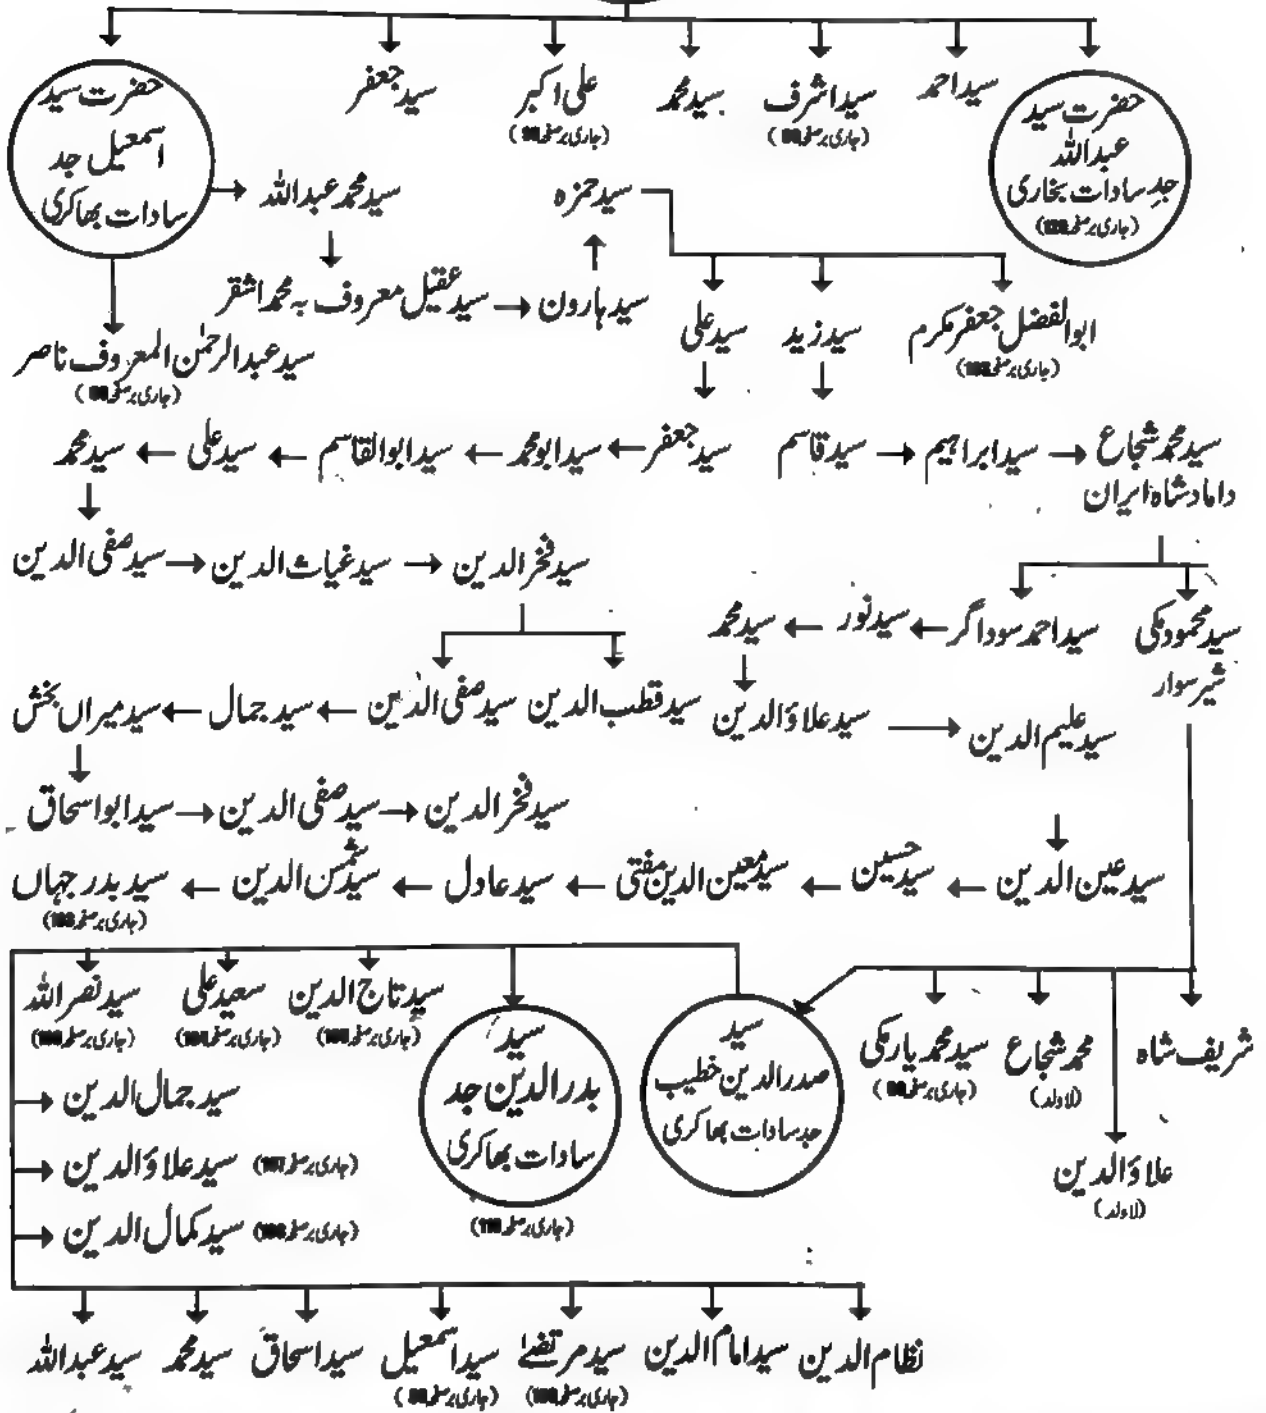 حضرت سید عبداللہ جدِ سادات بخاری (جاری بر صفحہ)
سید احمد
سید اشرف (جاری بر صفحہ)
سید محمد
علی اکبر (جاری بر صفحہ)
سید جعفر
حضرت سید اسمعیل جد سادات بھاکری
سید محمد عبداللہ
سید حمزہ
سید عقیل معروف بہ محمد اشقر
سید ہارون
سید علی
سید زید
ابوالفضل جعفر مکرم (جاری بر صفحہ)
سید عبدالرحمٰن المعروف ناصر (جاری بر صفحہ)
سید محمد شجاع داماد شاہ ایران
سید ابراہیم
سید قاسم
سید جعفر
سید ابو محمد
سید ابوالقاسم
سید علی
سید محمد
سید فخرالدین
سید غیاث الدین
سید صفی الدین
سید محمود مکی شیر سوار
سید احمد سوداگر
سید نور
سید محمد
سید علیم الدین
سید علاؤالدین
سید قطب الدین
سید صفی الدین
سید جمال
سید میراں بخش
سید فخرالدین
سید صفی الدین
سید ابواسحاق
سید عین الدین
سید حسین
سید معین الدین مفتی
سید عادل
سید شمس الدین
سید بدر جہاں
(جاری بر صفحہ)
شریف شاہ
محمد شجاع (لاولد)
سید محمد یار مکی (جاری بر صفحہ)
علاؤالدین
(لاولد)
سید صدرالدین خطیب جد سادات بھاکری
سید بدرالدین جد سادات بھاکری
(جاری بر صفحہ)
سید تاج الدین (جاری بر صفحہ)
سعید علی (جاری بر صفحہ)
سید نصراللہ (جاری بر صفحہ)
سید جمال الدین
سید علاؤالدین (جاری بر صفحہ)
سید کمال الدین (جاری بر صفحہ)
نظام الدین
سید امام الدین
سید مرتضےٰ (جاری بر صفحہ)
سید اسمعیل (جاری بر صفحہ)
سید اسحاق
سید محمد
سید عبداللہ